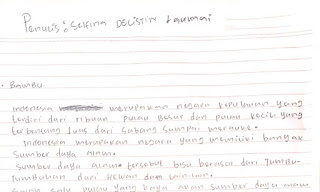 Penulis : Selfina DELISTIN Laumai
• Bambu
Indonesia merupakan negara kepulauan yang
terdiri dari ribuan pulau besar dan pulau kecil yang
terbentang luas dari Sabang sampai merauke.
Indonesia merupakan negara yang memiliki banyak
sumber daya alam.
Sumber daya alam tersebut bisa berasal dari tumbu-
tumbuhan dari hewan dan lain-lain.
Salah satu pulau yang kaya akan sumber daya alam